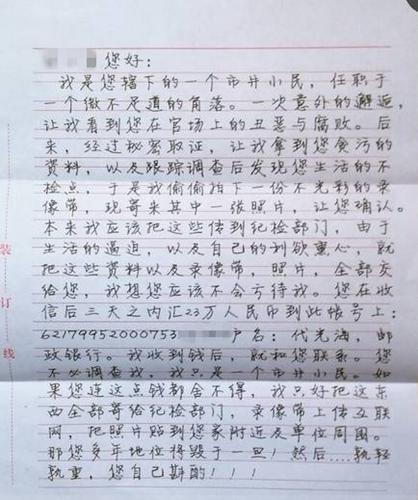 您好:
我是您辖下的一个市井小民,任职于
一个微不足道的角落。一次意外的邂逅,
让我看到您在官场上的丑恶与腐败。后
来,经过秘密取证,让我拿到您贪污的
资料,以及跟踪调查后发现您生活的不
检点,于是我偷偷拍下一份不光彩的录
像带,现寄来其中一张照片,让您确认。
本来我应该把这些传到纪检部门,由于
生活的逼迫,以及自己的利欲熏心,就
把这些资料以及录像带,照片,全部交
给您,我想您应该不会亏待我。您在收
信后三天之内汇23万人民币到此帐号上:
62179952000753 户名:代光海,邮
政银行。我收到钱后,就和您联系。您
不必调查我,我只是一个市井小民。如
果您连这点钱都舍不得,我只好把这东
西全部寄给纪检部门,录像带上传互联
网,把照片贴到您家附近及单位周围。
那您多年地位将毁于一旦!然后....孰轻
孰重,您自己斟酌!!!
装
订
线